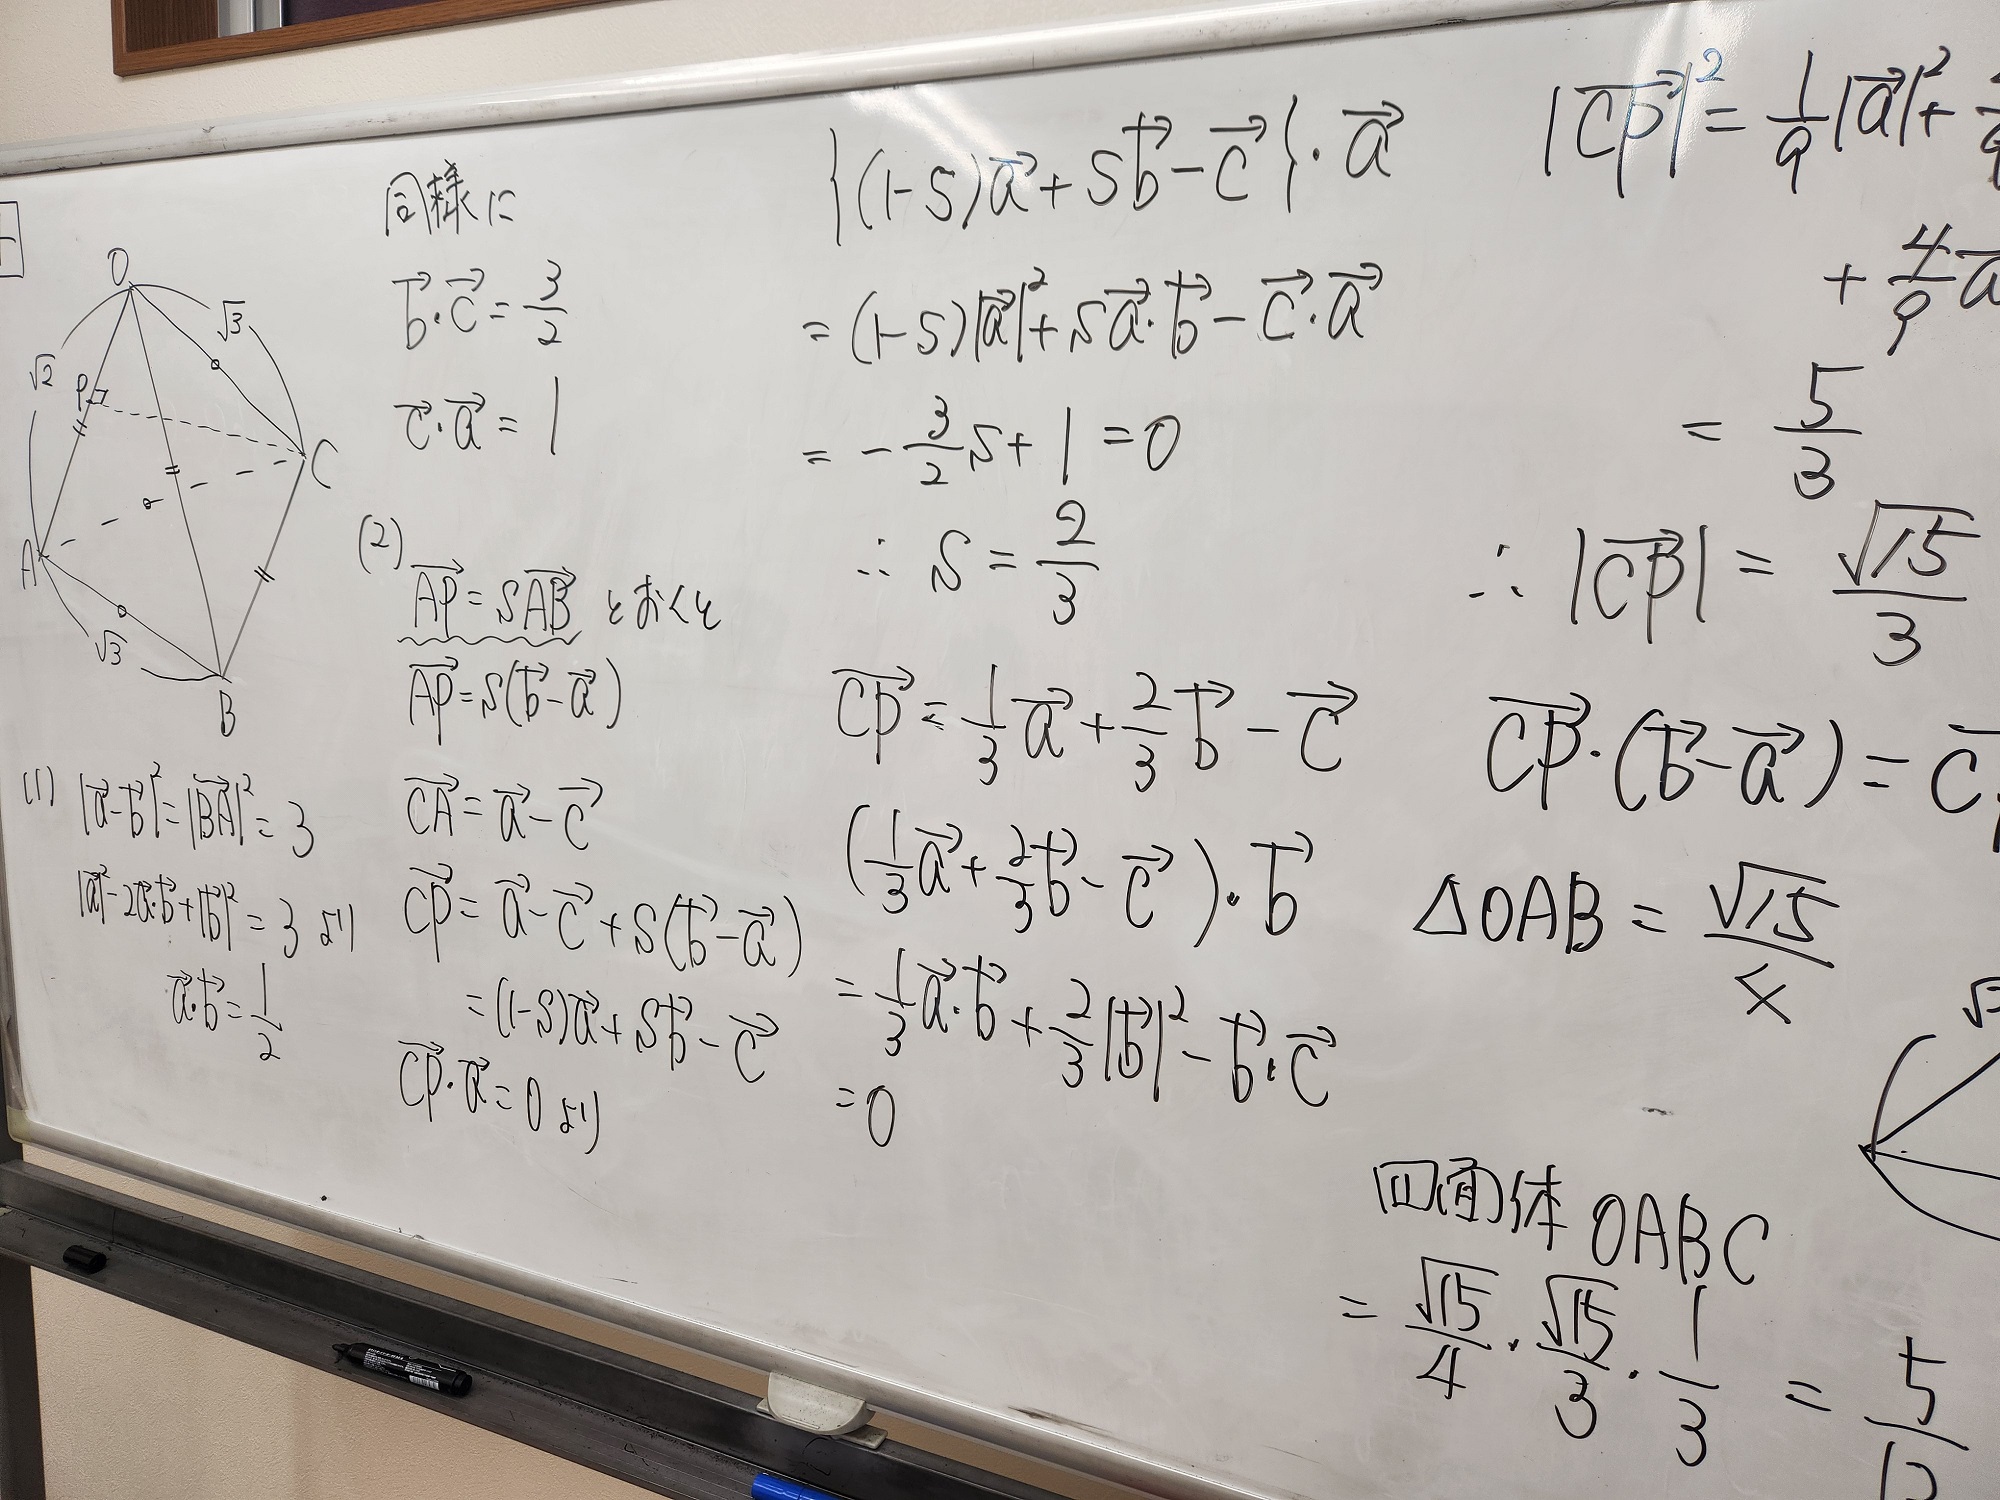 O
√3
√2
P
C
A
√3
B
(1) |a⃗-b⃗|²=|BA⃗|²=3
|a⃗|²-2a⃗·b⃗+|b⃗|²=3 より
a⃗·b⃗=1/2
同様に
b⃗·c⃗=3/2
c⃗·a⃗=1
(2)
AP⃗=sAB⃗ とおくと
AP⃗=s(b⃗-a⃗)
CA⃗=a⃗-c⃗
CP⃗=a⃗-c⃗+s(b⃗-a⃗)
=(1-s)a⃗+sb⃗-c⃗
CP⃗·a⃗=0 より
{(1-s)a⃗+sb⃗-c⃗}·a⃗
=(1-s)|a⃗|²+sa⃗·b⃗-c⃗·a⃗
=-3/2s+1=0
∴ s=2/3
CP⃗=1/3a⃗+2/3b⃗-c⃗
(1/3a⃗+2/3b⃗-c⃗)·b⃗
=1/3a⃗·b⃗+2/3|b⃗|²-b⃗·c⃗
=0
|CP⃗|²=1/9|a⃗|²+
+4/9a⃗
=5/3
∴|CP⃗|=√15/3
CP⃗·(b⃗-a⃗)=
△OAB=√15/4
四面体OABC
=√15/4·√15/3·1/3=5/